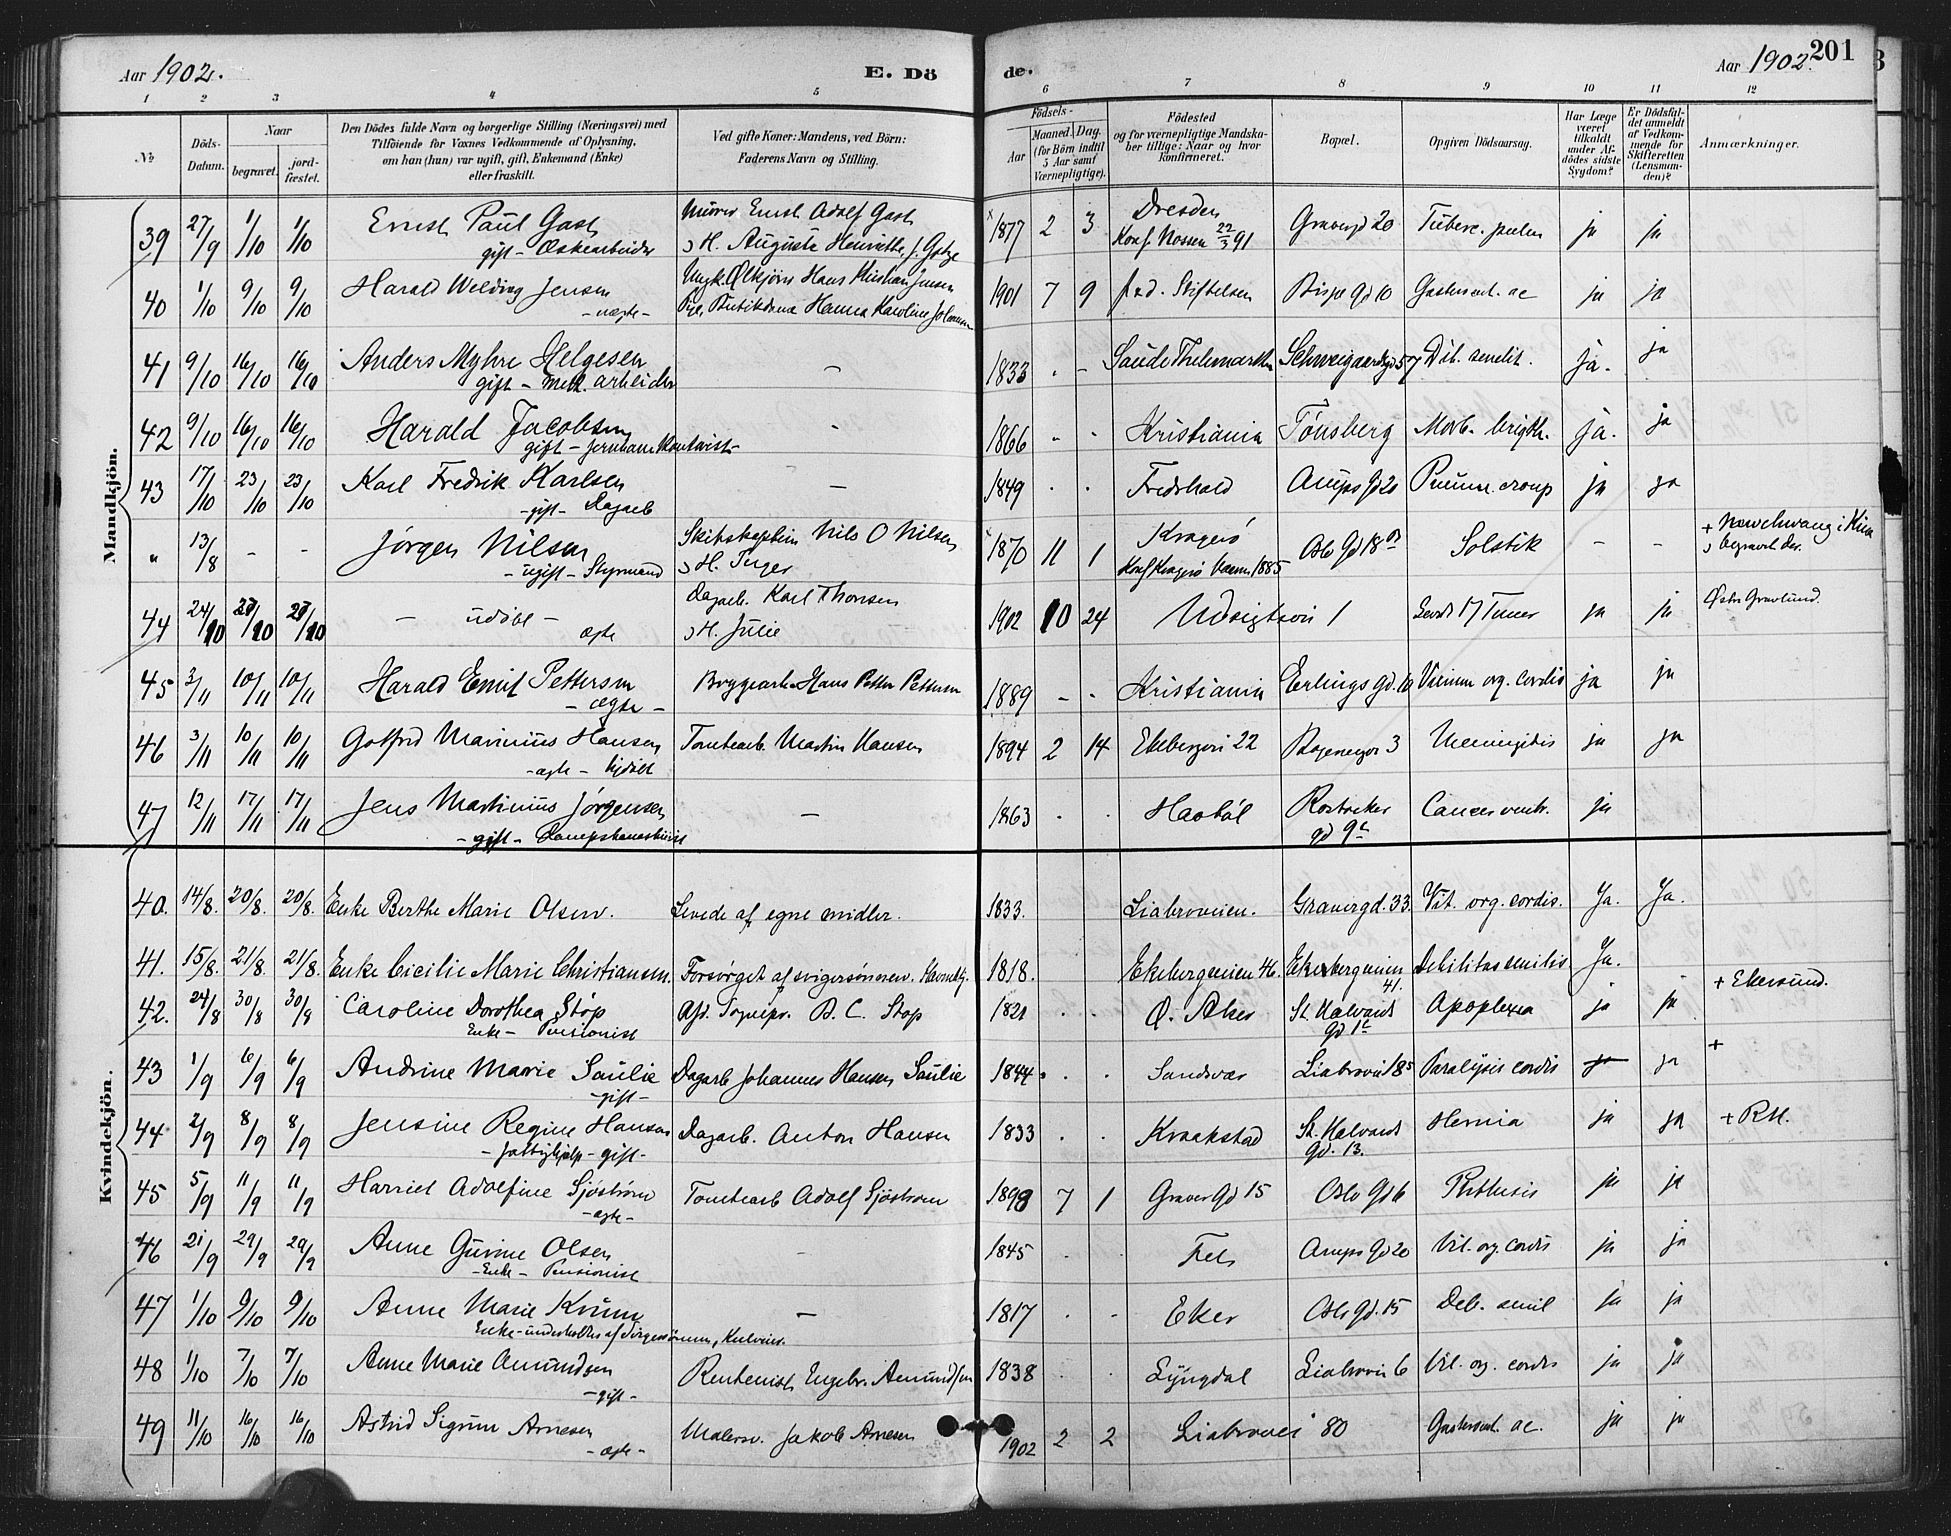 Aar 1902.
E. Dö
de.
Aar 1902.
201
1 2 3 4 5 6 7 8 9 10 11 12
№
Döds-Datum.
Naar
begravet.
jord-fæstet.
Den Dödes fulde Navn og borgerlige Stilling (Næringsvei) med
Tilföiende for Voxnes Vedkommende af Oplysning,
om han (hun) var ugift, gift, Enkemand (Enke)
eller fraskilt.
Ved gifte Koner: Mandens, ved Börn:
Faderens Navn og Stilling.
Födsels-
Aar
Maaned. Dag.
(for Börn indtil
5 Aar samt
Værnepligtige).
Födested
og for værnepligtige Mandska-
ber tillige: Naar og hvor
konfirmeret.
Bopæl.
Opgiven Dödsaarsag.
Har Læge
været
tilkaldt
under Af-
dödes sidste
Sygdom?
Er Dödsfal-
det anmeldt
af Vedkom-
mende for
Skifteretten
(Lensman-
den)?
Anmærkninger.
Mandkjön.
39 27/9 1/10 1/10 Ernst Paul Gast Murer Ernst Adolf Gast 1877 2 3 Dresden Gravergd 20 Tuberc. pulm ja ja
gift - Æskearbeider H. Auguste Henriette, f. Gotze Konf. Nossen 22/3 91
40 1/10 9/10 9/10 Harald Welding Jensen Ungk. Ølkjører Hans Kristian Jensen 1901 7 9 fød. Stiftelsen Bispe Gd 10 Gastroent. ac ja ja
- uægte - Pige, Butikdame Hanna Karoline
41 9/10 16/10 16/10 Anders Myhre Helgesen - 1833 . - Saude Thelemarken Schweigaardsgd 57 Deb. senilit. ja. ja
gift - mek. arbeider
42 9/10 16/10 16/10 Harald Jacobsen - 1866 - - Kristiania Tønsberg Morb. brigth. ja. ja
gift -
43 17/10 23/10 23/10 Karl Fredrik Karlsen - 1849 . . Fredrhald Arups Gd 20 Pneum. croup ja ja
- gift - Dagarb
" 13/8 - - Jørgen Nilsen Skibskaptein Nils O Nilsen 1870 11 1 Kragerø Oslo Gd 18 Solstik - - + i Kina
- ugift - Styrmand H. Inger Konf Kragerø 1885 begravet der.
44 24/10 27/10 27/10 - udøbt - Dagarb. Karl Thorsen 1902 10 24 Udsigtsvei 1 Levet 17 Timer ja ja Østre Gravlund.
ægte H. Julie
45 3/11 10/11 10/11 Harald Emil Pettersen Bryggearb. Hans Petter Pettersen 1889 - - Kristiania Erlings Gd. 10 Vitium org. cordis ja ja
- ægte -
46 3/11 10/11 10/11 Gotfred Marinius Hansen Tomtearb. Martin Hansen 1894 2 14 Ekebergvei 22 3 Meningitis ja ja
- ægte - hjdøbt
47 12/11 17/11 17/11 Jens Martinius Jørgensen - 1863 . . Havbøl Rostocker Cancer ventr. ja
- gift - gd 9
Kvindekjön.
40. 14/8. 20/8. 20/8. Enke Berthe Marie Olsen. Levede af egne midler. 1833. Liabroveien. Gravergd. 33. Vit. org. cordis. Ja. Ja.
41. 15/8. 21/8. 21/8. Enke Cicilie Marie Christiansen. Forsørget af svigersønnen. 1818. Ekebergveien 46. Ekebergveien 41. Debilitas senilis Ja. -
42. 24/8 30/8 30/8 Caroline Dorothea Støp Afd. Sognepr. B. C. Støp 1821 . . Ø. Aker St. Halvards Apoplexia ja ja + Ekersund.
Enke - Pensionist gd 1
43 1/9 6/9 6/9 Andrine Marie Saulie Dagarb Johannes Hansen Saulie 1844 . . Sandsvær Liabrovei 185 Paralysis cordis ja ja +
- gift -
44 2/9 8/9 8/9 Jensine Regine Hansen Dagarb. Anton Hansen 1833 . . Kraakstad St. Halvards Hernia ja ja + RH.
- fattighjælp - gift - Gd. 13.
45 5/9 11/9 11/9 Harriet Adolfine Sjöström Tomtearb Adolf Sjöström 1898 7 1 Graver Gd 15 Oslo Gd 6 Phthisis ja ja
- ægte -
46 21/9 29/9 29/9 Anne Gurine Olsen - 1845 . . Fets Arups Gd 20 Vit. org. cordis ja ja
- Enke - Pensionist
47 1/10 9/10 9/10 Anne Marie Krum - 1817 . . Eker Oslo gd. 15 Deb. senil ja ja
Enke - underholdtes af Svigersønnen,
48 1/10 7/10 7/10 Anne Marie Amundsen Rentenist Engebr. Amundsen 1838 Lyngdal Liabrovei 6 Vit. org. cordis ja ja
- gift -
49 11/10 16/10 16/10 Astrid Sigrun Arnesen Malersv. Jakob Arnesen 1902 2 2 Liabrovei 80 Gastroent. ac. ja ja
- ægte -